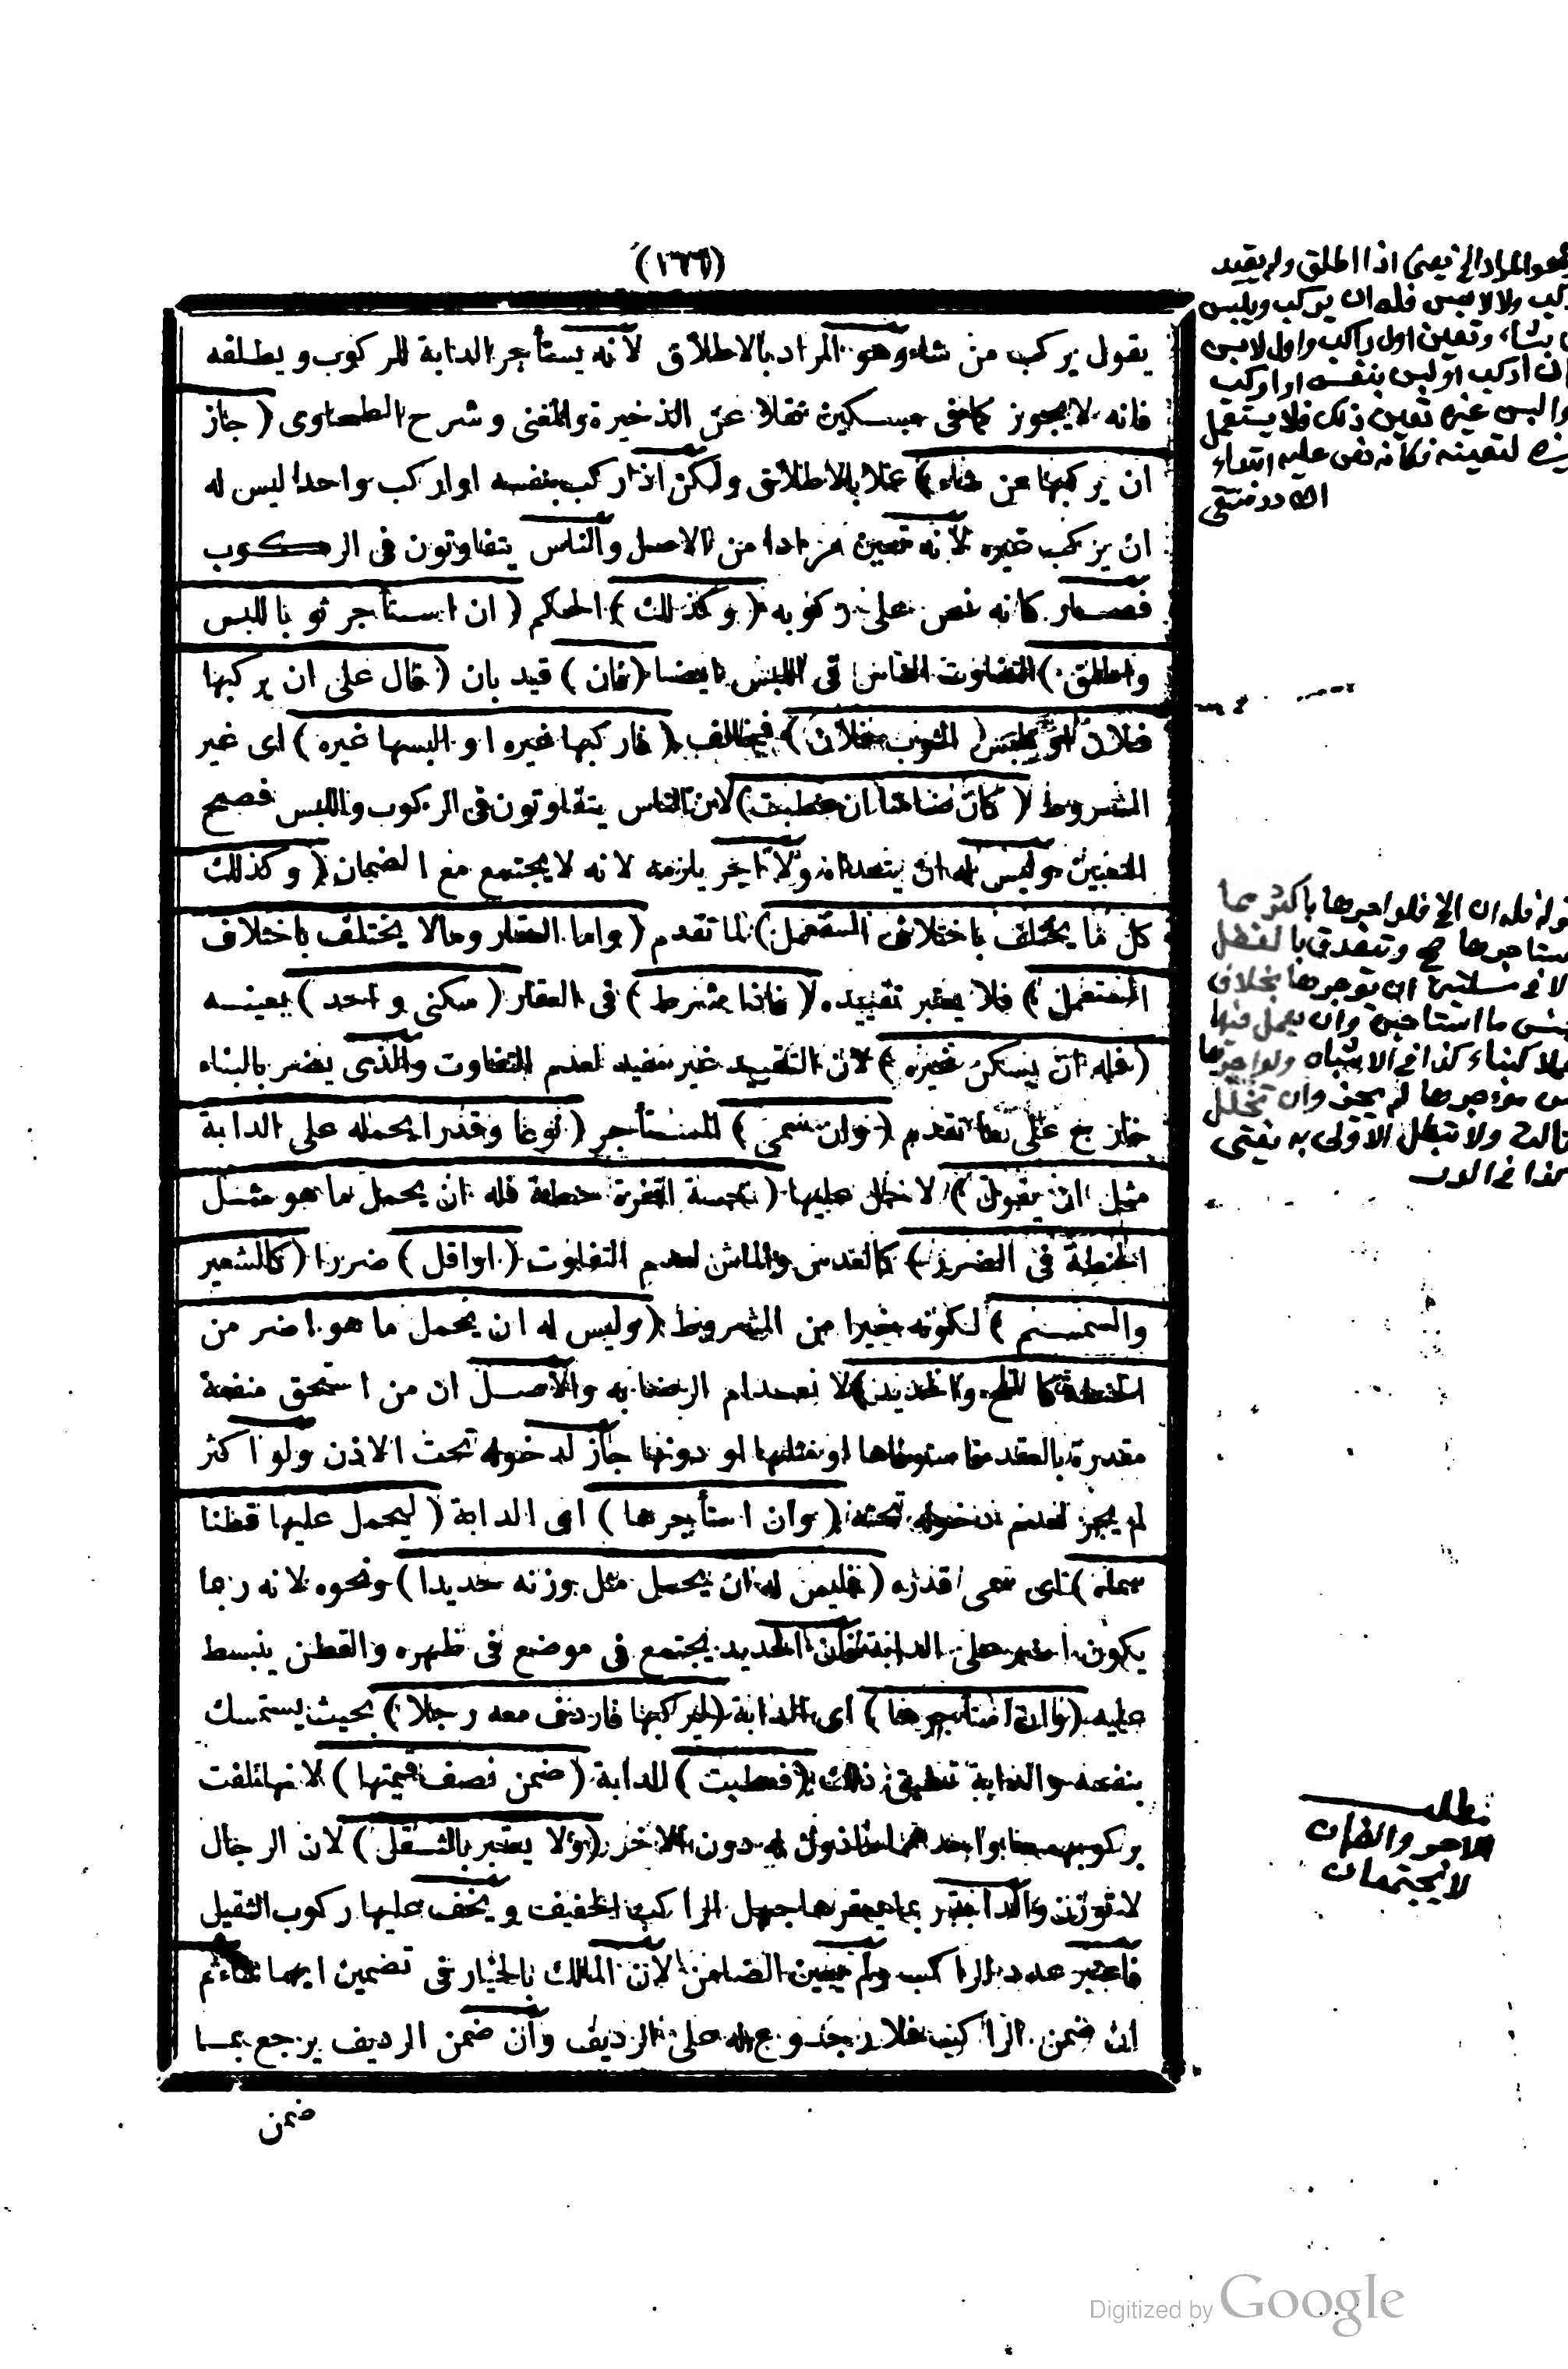 (١٦٦)
يقول يركب من شاء وهو المراد بالاطلاق لانه يستأجر الدابة للركوب ويطلقه
فانه لا يجوز كما فى مسكين نقلا عن الذخيرة والمغنى وشرح الطحاوى (جاز
ان يركبها من شاء) عملا بالاطلاق ولكن اذا ركب بنفسه او اركب واحدا ليس له
ان يركب غيره لانه تعين مرادا من الاصل والناس يتفاوتون فى الركوب
فصار كانه نص على ركوبه (وكذلك) الحكم (ان استأجر ثوبا للبس
واطلق) لتفاوت الناس فى اللبس ايضا (فان) قيد بان (قال على ان يركبها
فلان او يلبس الثوب فلان) فخالف (فاركبها غيره او البسها غيره) اى غير
المشروط (كان ضامنا ان عطبت) لان الناس يتفاوتون فى الركوب واللبس فصح
التعيين وليس له ان يتعداه ولا اجر يلزمه لانه لا يجتمع مع الضمان (وكذلك
كل ما يختلف باختلاف المستعمل) لما تقدم (واما العقار وما لا يختلف باختلاف
المستعمل) فلا يعتبر تقييده (فاذا شرط) فى العقار (سكنى واحد) بعينه
(فله ان يسكن غيره) لان التقييد غير مفيد لعدم التفاوت والذى يضر بالبناء
خارج على ما تقدم (وان سمى) للمستأجر (نوعا وقدرا يحمله على الدابة
مثل ان يقول) لاحمل عليها (خمسة اقفزة حنطة فله ان يحمل ما هو مثل
الحنطة فى الضرر) كالعدس والماش لعدم التفاوت (او اقل) ضررا (كالشعير
والسمسم) لكونه خيرا من المشروط (وليس له ان يحمل ما هو اضر من
الحنطة كالملح والحديد) لانعدام الرضا به والاصل ان من استحق منفعة
مقدرة بالعقد فاستوفاها او مثلها او دونها جاز لدخوله تحت الاذن ولو اكثر
لم يجز لعدم دخوله تحته (وان استأجرها) اى الدابة (ليحمل عليها قطنا
سماه) اى سمى قدره (فليس له ان يحمل مثل وزنه حديدا) ونحوه لانه ربما
يكون اضر على الدابة فان الحديد يجتمع فى موضع فى ظهره والقطن ينبسط
عليه (وان استأجرها) اى الدابة (ليركبها فاردف معه رجلا) بحيث يستمسك
بنفسه والدابة تطيق ذلك (فعطبت) الدابة (ضمن نصف قيمتها) لانها تلفت
بركوبهما واحدهما مأذون له دون الاخر (ولا يعتبر بالثقل) لان الرجال
لا توزن والدابة يعقرها جهل الراكب الخفيف ويخف عليها ركوب الثقيل
فاعتبر عدد الراكب ولم يبين الضامن لان المالك بالخيار فى تضمين ايهما شاء ثم
ان ضمن الراكب فلا رجوع له على الرديف وان ضمن الرديف يرجع بما
ضمن
وهو المراد الخ يعنى اذا اطلق ولم يقيد
ولا لابس فله ان يركب ويلبس
وتعين اول راكب واول لابس
ان اركب او لبس بنفسه او اركب
والبس غيره تعين ذلك فلا يستعمل
لتعينه فكانه نص عليه ابتداء
در منتقى
قوله فله ان الخ فلو اجرها باكثر مما
استاجرها وتصدق بالفضل
الا فى مسئلتين ان يؤجرها بخلاف
جنس ما استاجر وان يعمل فيها
عملا كبناء كذا فى الاشباه ولو اجرها
من مؤجرها لم يجز وان تخلل
ثالث ولا تبطل الاولى به يفتى
كذا فى الدر
مطلب
الاجر والضمان
لا يجتمعان
Digitized by Google